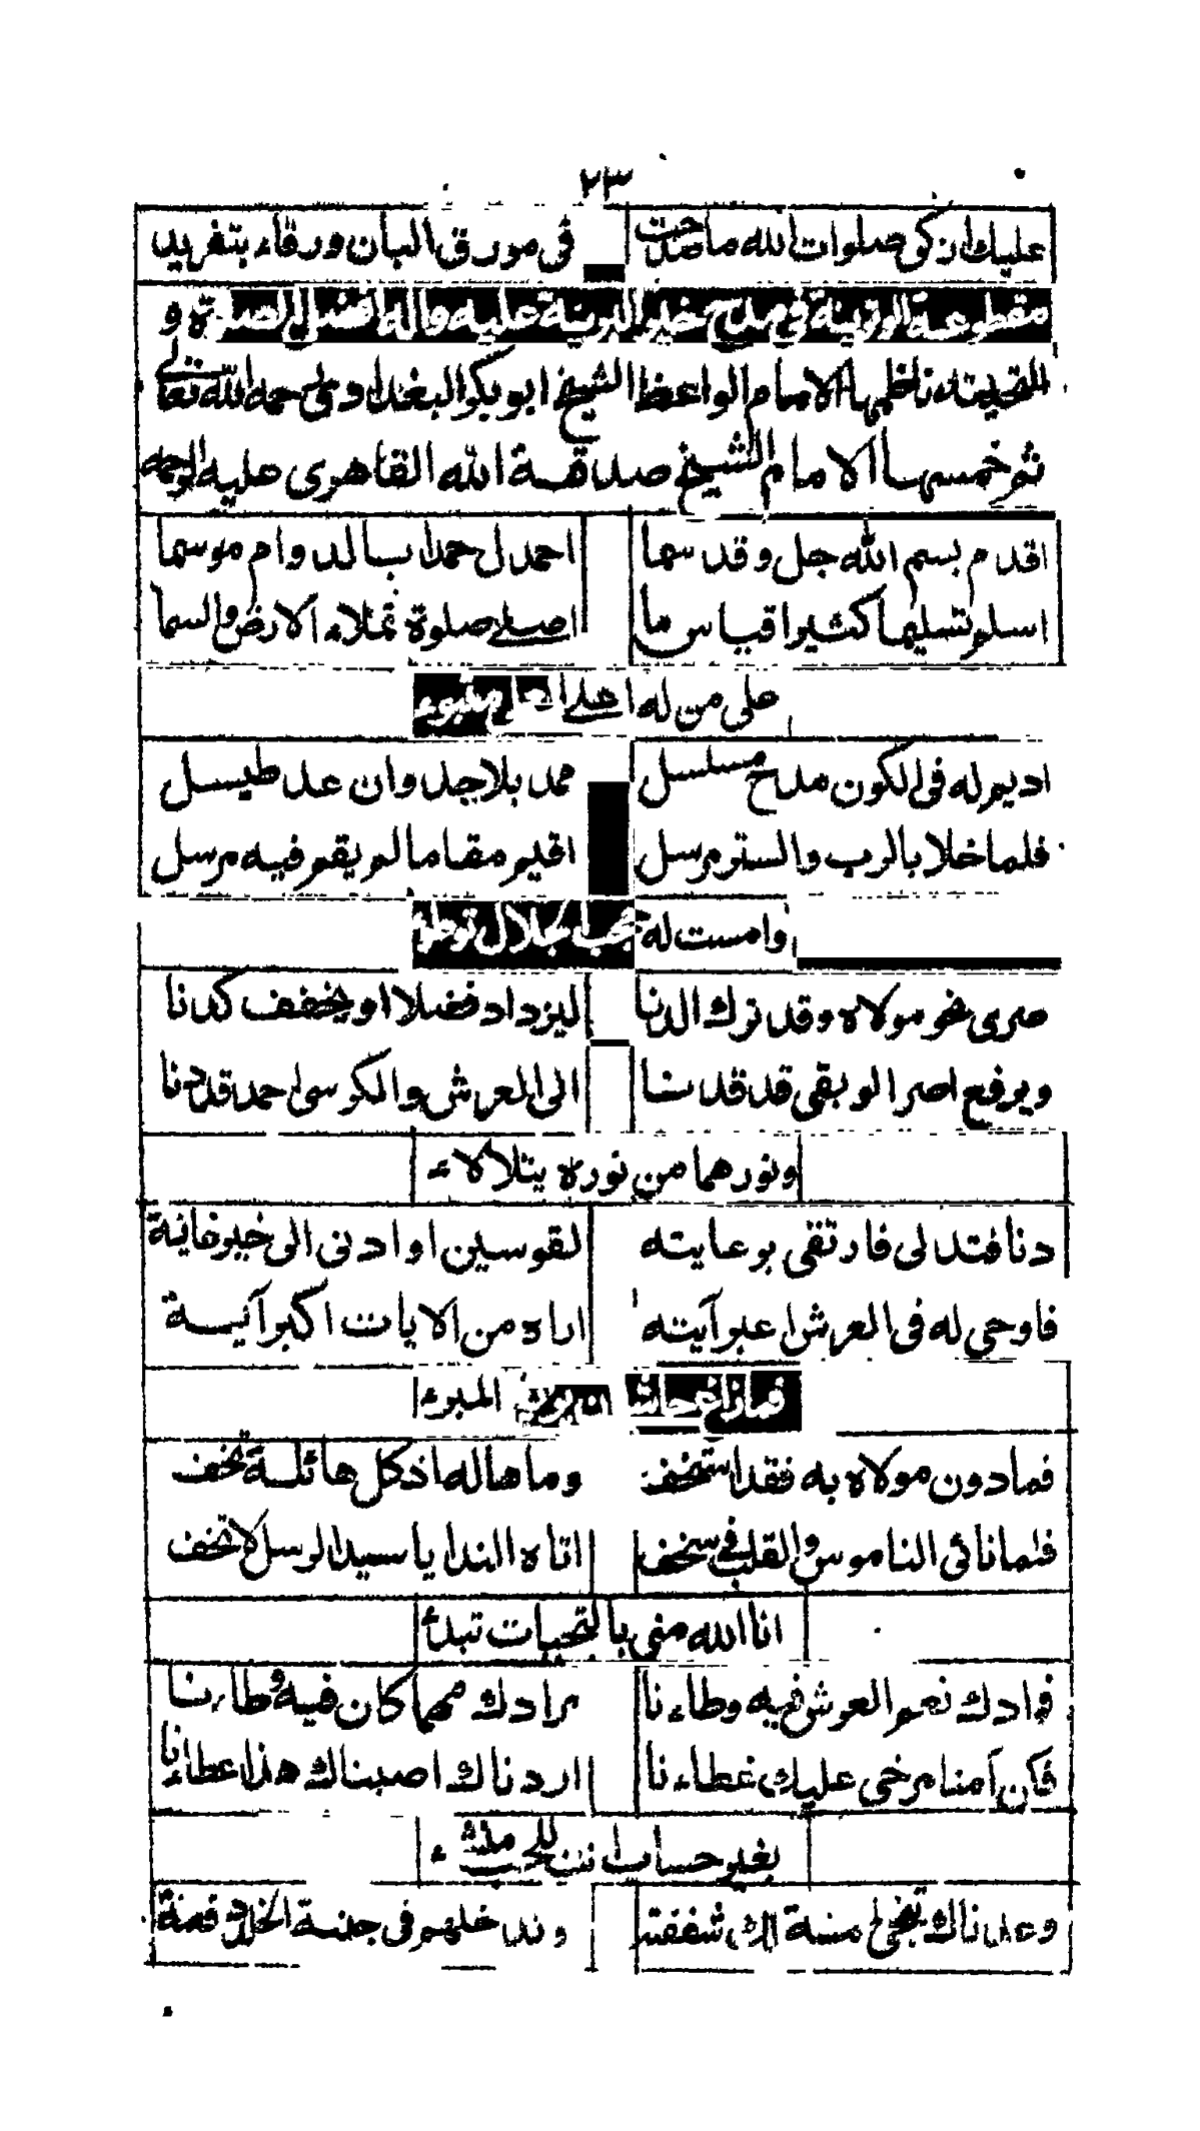 ٢٣
عليك ازكى صلوات الله ما صدحت في مورق البان ورقاء بتغريد
مقطوعة الوترية في مدح خير البرية عليه واله افضل الصلوة و
التحية ناظمها الامام الواعظ الشيخ ابو بكر البغدادى رحمه الله تعالى
ثم خمسها الامام الشيخ صدقة الله القاهرى عليه الرحمه
اقدم بسم الله جل وقد سما احمدل حمدا بالدوام موسما
اسلم تسليما كثيرا قياس ما اصلى صلوة تملاء الارض والسما
على من له اعلى العلى متبوء
اديم له فى الكون مدح مسلسل محمد بلا جد وان عد طيسل
فلما خلا بالرب والستر مرسل اقيم مقاما لم يقم فيه مرسل
وامست له حجب الجلال توطؤ
سرى نحو مولاه وقد ترك الدنا ليزداد فضلا او يخفف كدنا
ويرفع اصرا لو بقى قد قد سنا الى العرش والكرسى احمد قد دنا
ونورهما من نوره يتلالاء
دنا فتدلى فارتقى بوعايته لقوسين او ادنى الى خير غاية
فاوحى له فى العرش اعبر آيته اراه من الايات اكبر آية
المبرء
فما دون مولاه به فقد استخف وما هاله اذ كل هائلة تخف
فلما نائى الناموس والقلب فى سخف اتاه الندا يا سيد الرسل لا تخف
انا الله منى بالتحيات تبدأ
فوادك نعم العرش فيه وطاءنا مرادك مهما كان فيه وطاءنا
فكن آمنا مرخى عليك غطاءنا اردناك احببناك هذا عطاءنا
بغير حساب انت للحب منشء
وعدناك منة شففته وندخلهم فى جنة الخلد